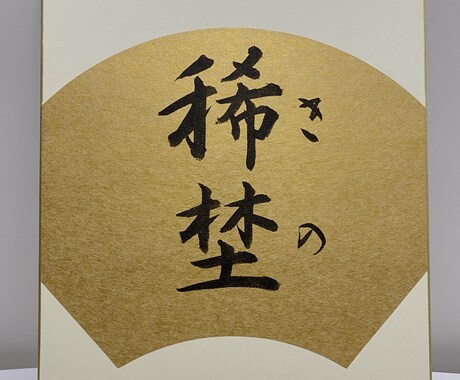 稀埜
きの